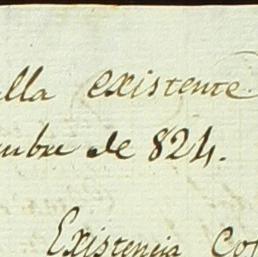 lla existente
mbre de 824.
Existencia Co